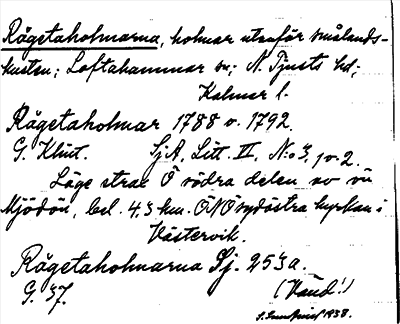 Rågetaholmarna, holmar utanför Smålands-
kusten; Loftahammar sn; N. Tjusts hd;
Kalmar l.
Rågetaholmar 1788 o. 1792.
G. Klint. Sj A, Litt. II, No 3, 1 o. 2.
Läge strax Ö södra delen av ön
Mjödön, bel. 4.3 km. ÖNO sydöstra kyrkan i
Västervik.
Rågetaholmarna Sj. 253a.
G. 37. (Vänd!)
1938.